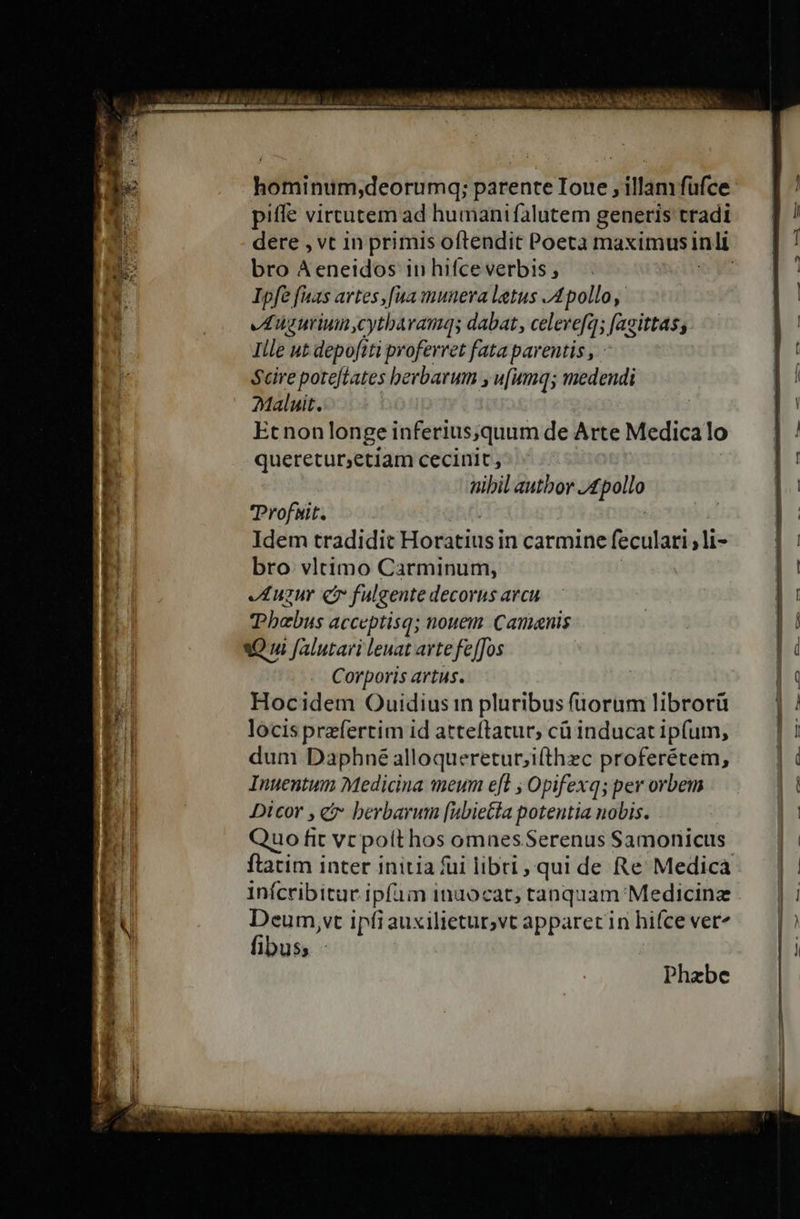 hominum,deorumq; parente Ioue , illam ſuſce
piſſe virtutem ad humani ſalutem generis tradi
dere , vt in primis oſtendit Poeta maximus in li
bro Aeneidos in hiſce verbis ,
Ipſe ſuas artes, ſua munera lætus Apollo,
Augurium ,cytharamq; dabat, celereſq; ſagittas,
Ille ut depoſiti proferret fata parentis ,
Scire poteſtates herbarum , uſumq; medendi
Maluit.
Et non longe inferius,quum de Arte Medica lo
queretur,etiam cecinit,
nihil author Apollo
Profuit.
Idem tradidit Horatius in carmine ſeculari , li-
bro vltimo Carminum,
Augur & fulgente decorus arcu
Phœbus acceptisq; nouem Camænis
Qui ſalutari leuat arte feſſos
Corporis artus.
Hoc idem Ouidius in pluribus ſuorum librorū
locis præſertim id atteſtatur, cū inducat ipſum,
dum Daphné alloqueretur,iſthæc proferétem,
Inuentum Medicina meum eſt , Opifexq; per orbem
Dicor , & herbarum ſubiecta potentia nobis.
Quo fit vt poſt hos omnes Serenus Samonicus
ſtatim inter initia ſui libri , qui de Re Medica
inſcribitur ipſum inuocat, tanquam Medicinæ
Deum,vt ipſi auxilietur,vt apparet in hiſce ver-
ſibus,
Phæbe